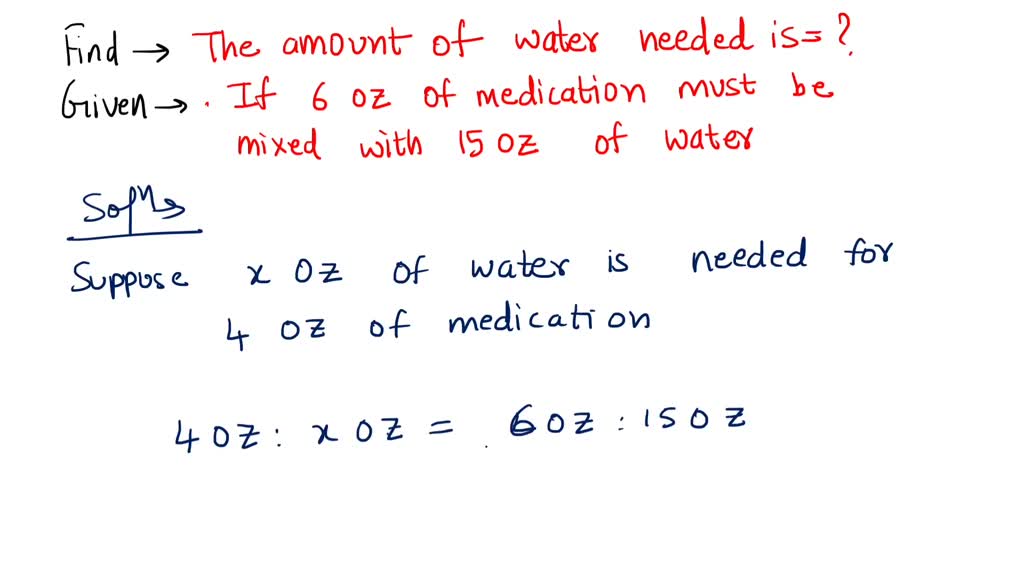 Find → The amount of water needed is = ?
Given → . If 6 oz of medication must be
mixed with 15 oz of water
Soln
Suppose x oz of water is needed for
4 oz of medication
4 oz : x oz = 6 oz : 15 oz